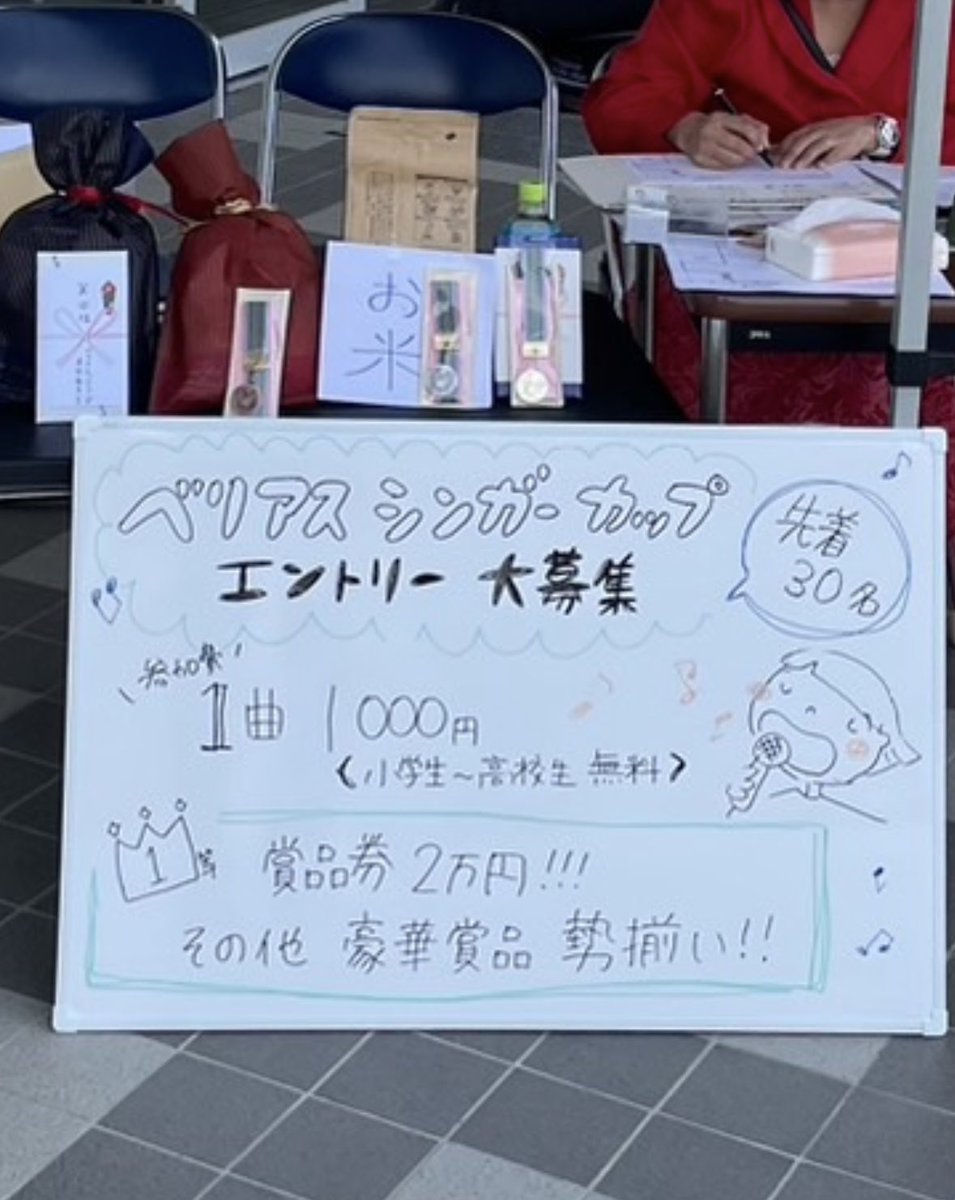 お米
ベリアス シンガー カップ
エントリー 大募集
先着
30名
参加費
1曲 1000円
《小学生～高校生 無料》
1等 賞品券 2万円!!!
その他 豪華賞品 勢揃い!!